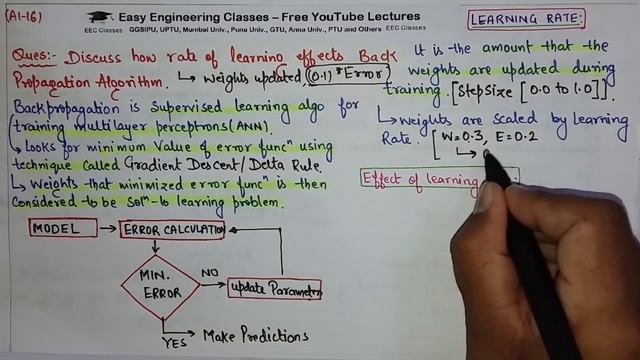 (AI-16)
Easy Engineering Classes – Free YouTube Lectures
EEC Classes GGSIPU, UPTU, Mumbai Univ., Pune Univ., GTU, Anna Univ., PTU and Others EEC Classes
Ques:- Discuss how rate of learning effects Back
Propagation Algorithm. ↳ Weights updated, (0.1) * Error
Backpropagation is Supervised learning algo for
training multilayer perceptrons (ANN).
↳ Looks for minimum Value of error funcⁿ using
technique called Gradient Descent/Delta Rule.
↳ Weights that minimized error funcⁿ is then
Considered to be solⁿ to learning problem.
MODEL → ERROR CALCULATION
MIN.
ERROR
NO
update Parameters
YES → Make Predictions
LEARNING RATE:
It is the amount that the
weights are updated during
training. [StepSize [0.0 to 1.0]].
↳ Weights are scaled by learning
Rate. [W=0.3, E=0.2
Effect of learning